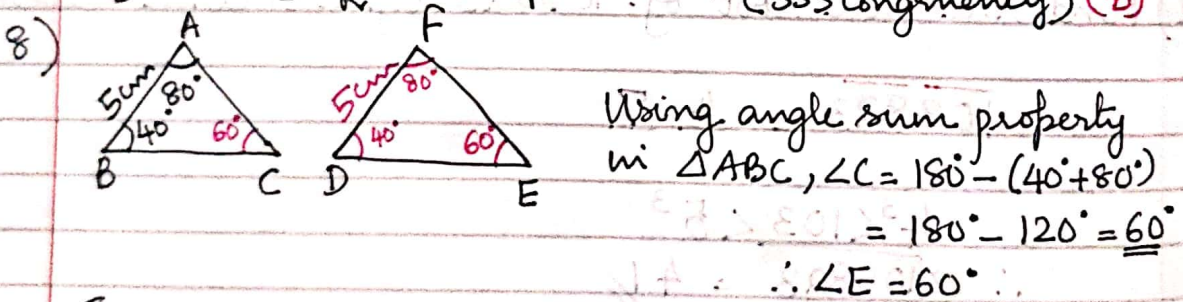 (SSS Congruency) (b)
8)
A
5cm
80°
40°
60°
B
C
F
5cm
80°
40°
60°
D
E
Using angle sum property
in △ABC, ∠C = 180° - (40°+80°)
= 180° - 120° = 60°
∴ ∠E = 60°